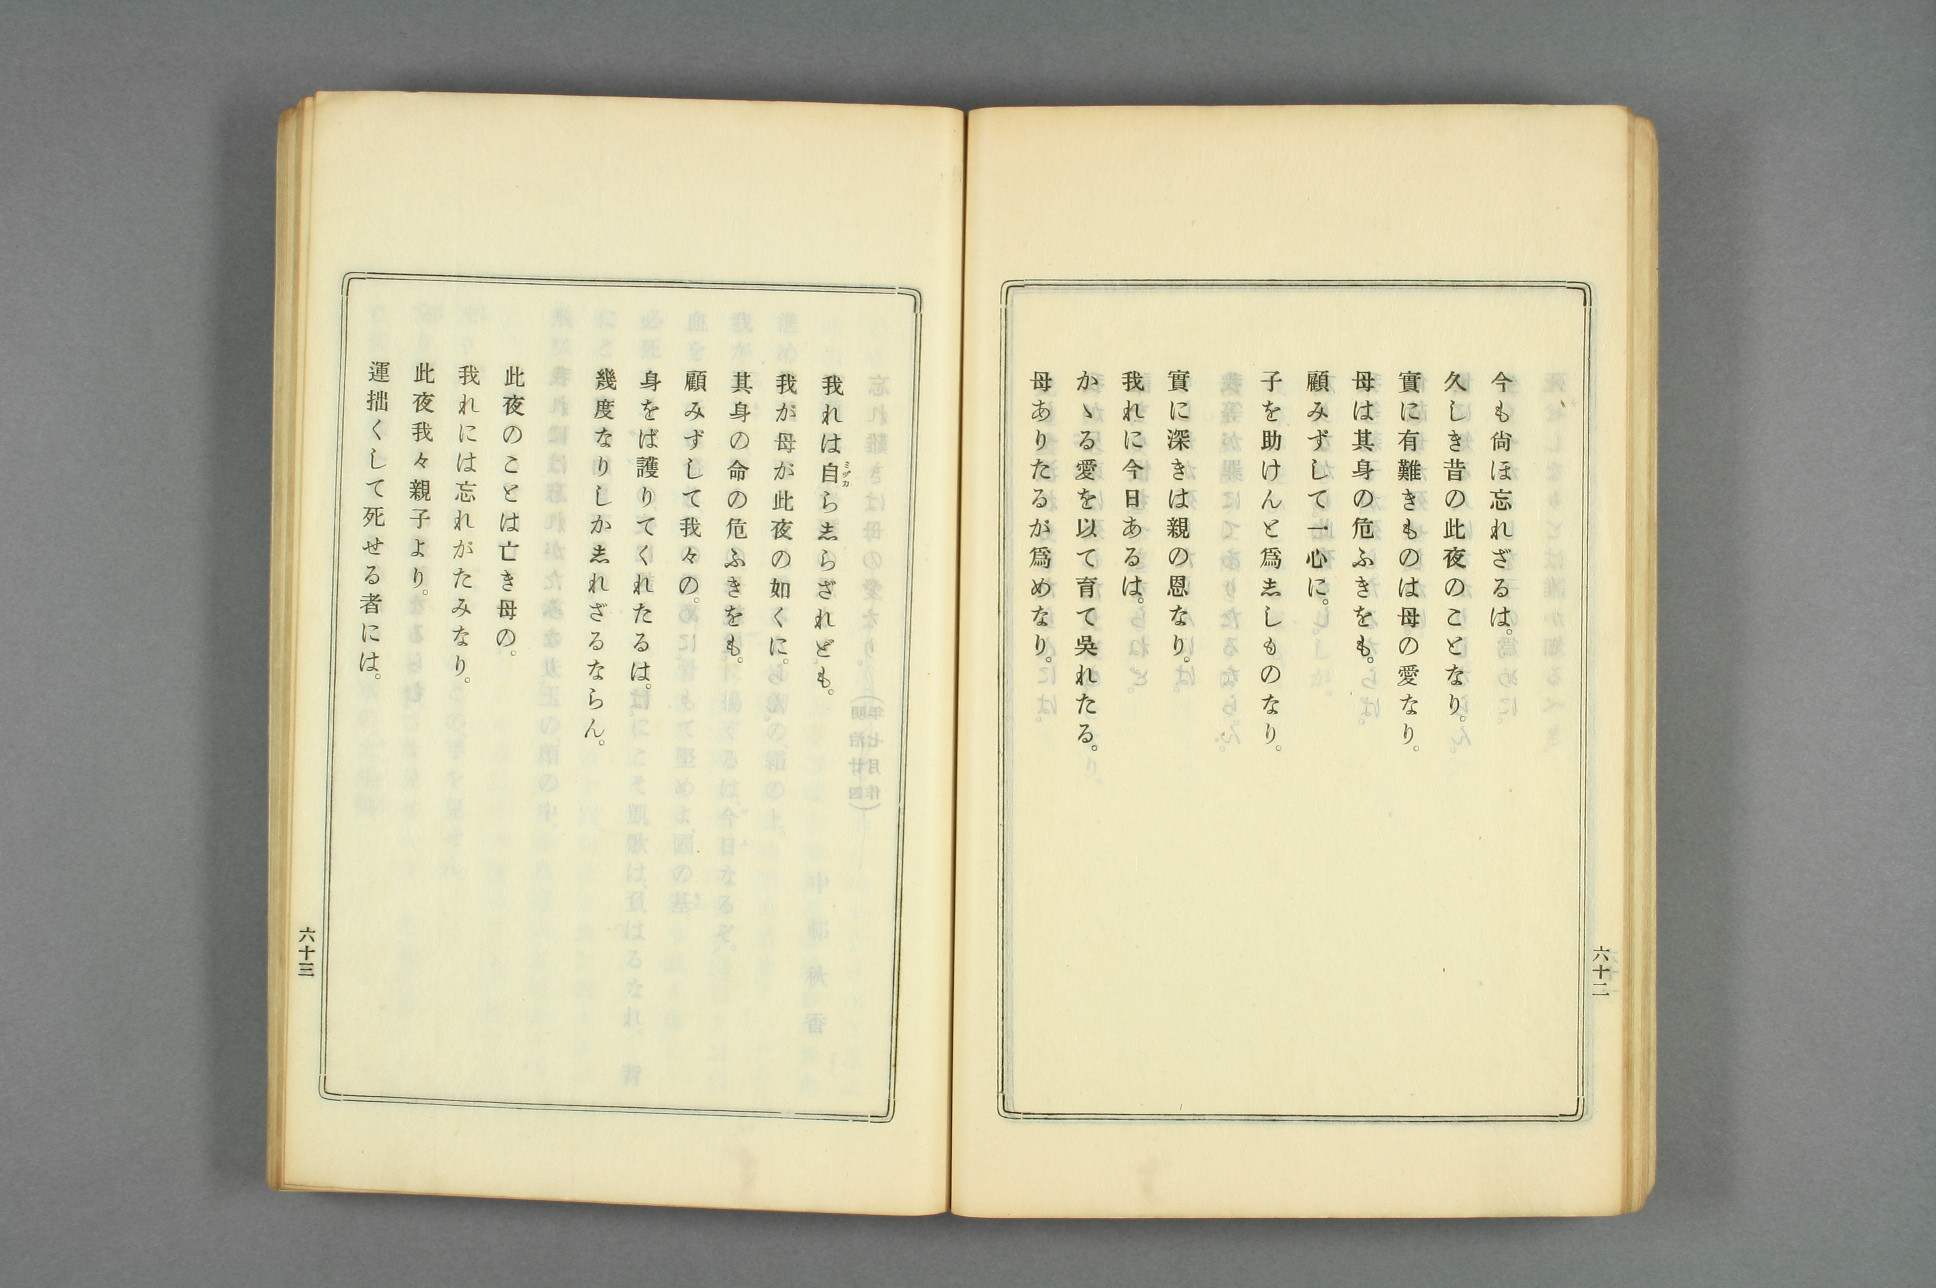 今も尙ほ忘れざるは。
久しき昔の此夜のことなり。
實に有難きものは母の愛なり。
母は其身の危ふきをも。
顧みずして一心に。
子を助けんと爲志しものなり。
實に深きは親の恩なり。
我れに今日あるは。
かゝる愛を以て育て吳れたる。
母ありたるが爲めなり。
六十二
我れは自ら志らざれども。
ミヅカ
我が母が此夜の如くに。
其身の命の危ふきをも。
顧みずして我々の。
身をば護りてくれたるは。
幾度なりしか志れざるならん。
此夜のことは亡き母の。
我れには忘れがたみなり。
此夜我々親子より。
運拙くして死せる者には。
六十三